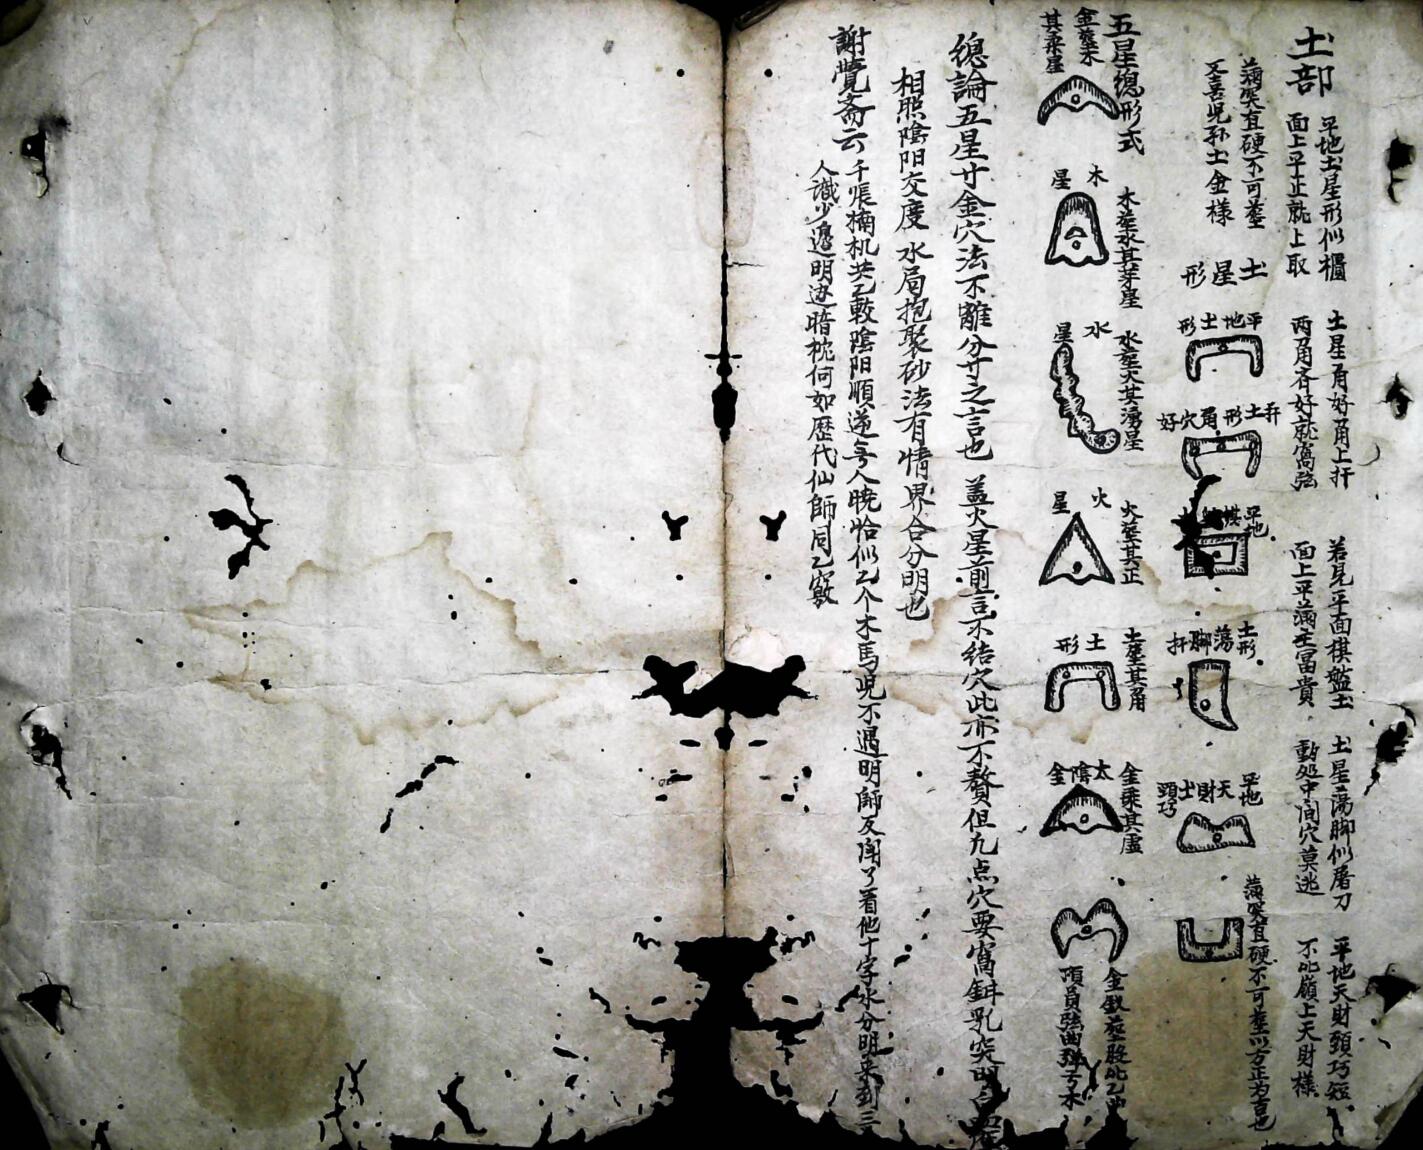 土部
平地土星形似櫃
面上平正就上取
土星角好角上扦
兩角齊好就窩弦
若見平面棋盤土
面上平滿主富貴
土星蕩脚似屠刀
動処中间穴莫逃
平地天財頭巧短
不比嶺上天財樣
滿突直硬不可塟
又喜児孙土金樣
土星形
平地土形
扦土形角穴好
平地棋
土形蕩脚扦
平地天財土頭巧
滿突直硬不可塟以方正为吉也
五星總形式
金塟水其乘星
木星
木塟水其芽星
水星
水塟火其湧星
火星
火塟其正
土形
土塟其角
太陰金
金乘其虛
金釵塟股此乙曲
頂員弦曲弹弓木
總論五星廿金穴法不離分寸之言也 葢火星前言不结穴此亦不贅但九点穴要窩鉗乳突明白
相照陰阳交度水局抱聚砂法有情界合分明也
謝覺斋云
千張楠机共乙較陰阳順逆旡人暁恰似乙个木馬児不遇明師反闹了看他十字水分明来到三
人識少邊明边暗枕何如歷代仙師同乙竅